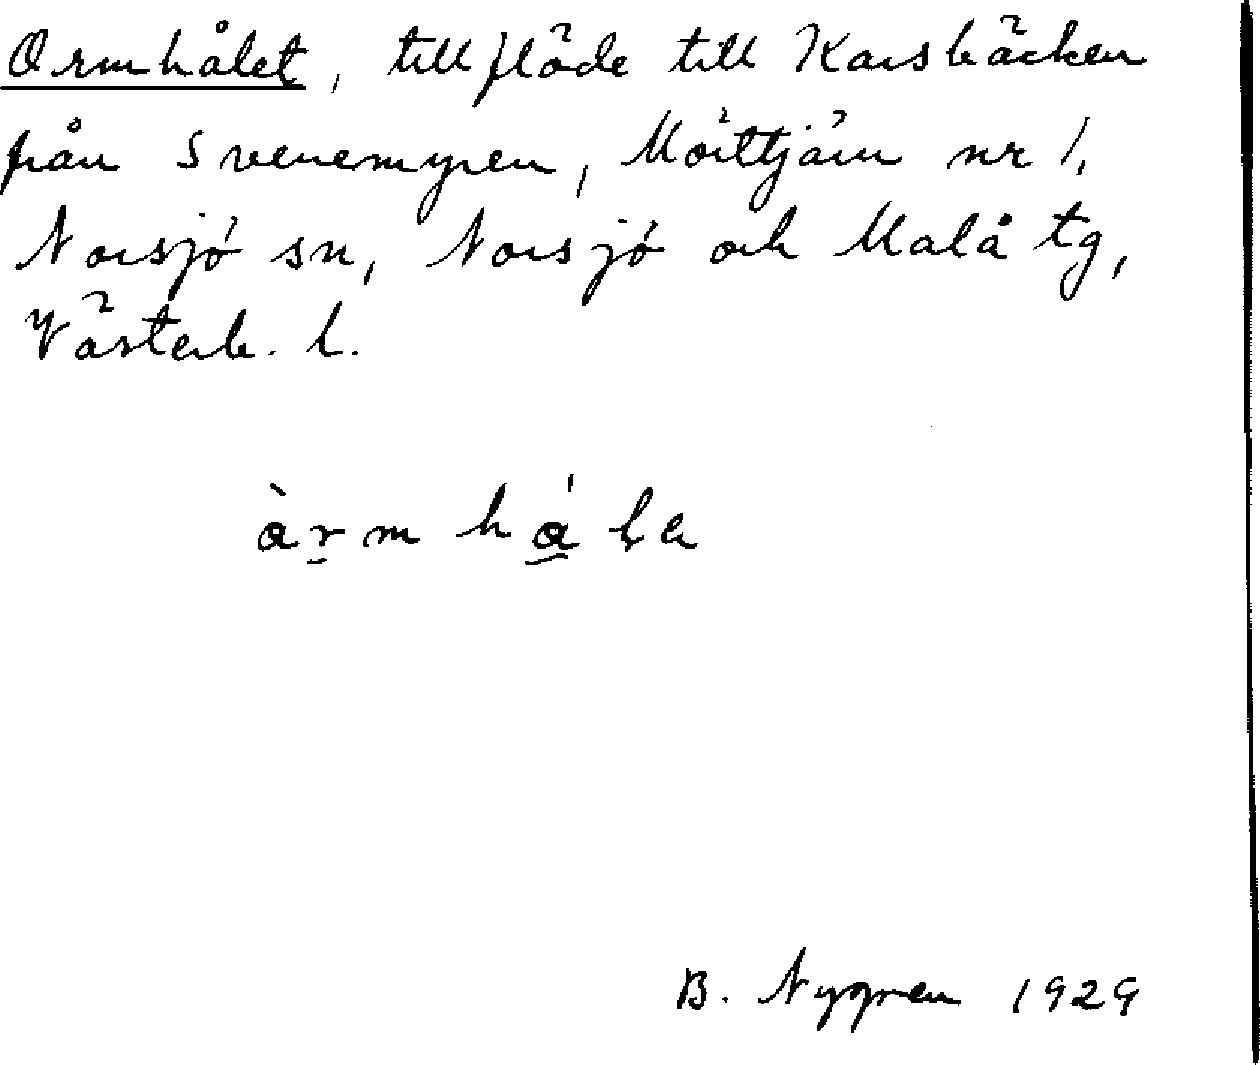 Ormhålet, tillflöde till Karsbäcken
från Svenemyren, Mörttjärn nr 1,
Norsjö sn, Norsjö och Malå tg,
Västerb. l.
B. Nygren 1929